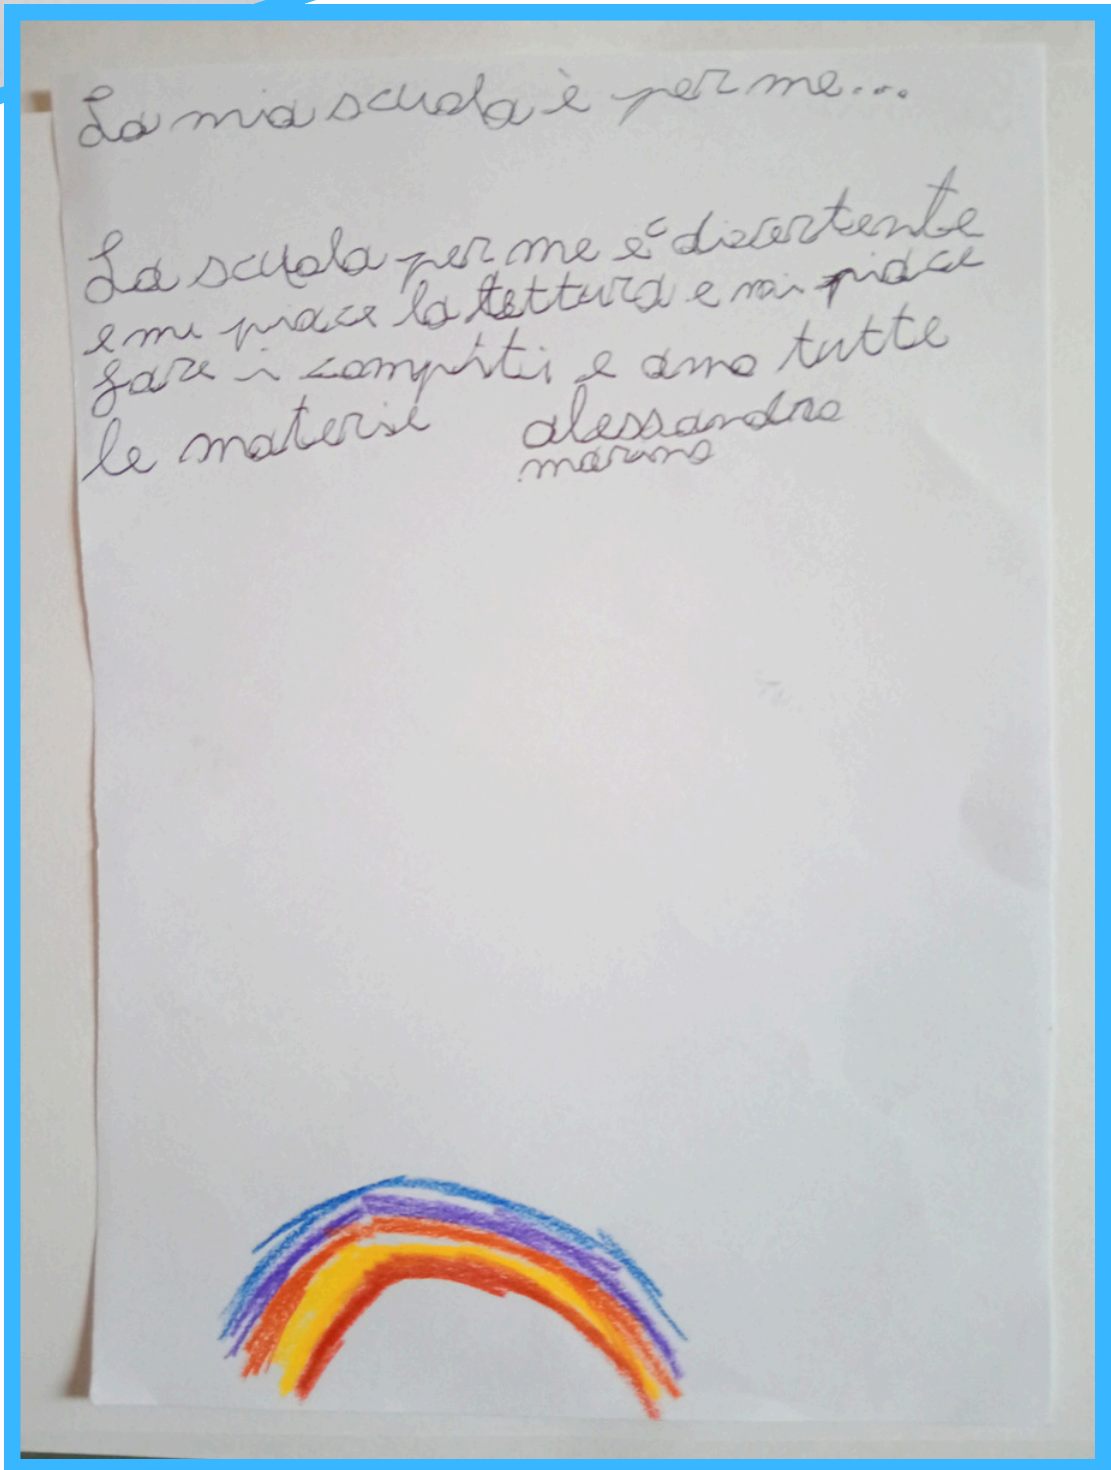 La mia scuola è per me...
La scuola per me è divertente
e mi piace la lettura e mi piace
fare i compiti e amo tutte
le materie alessandro
marino